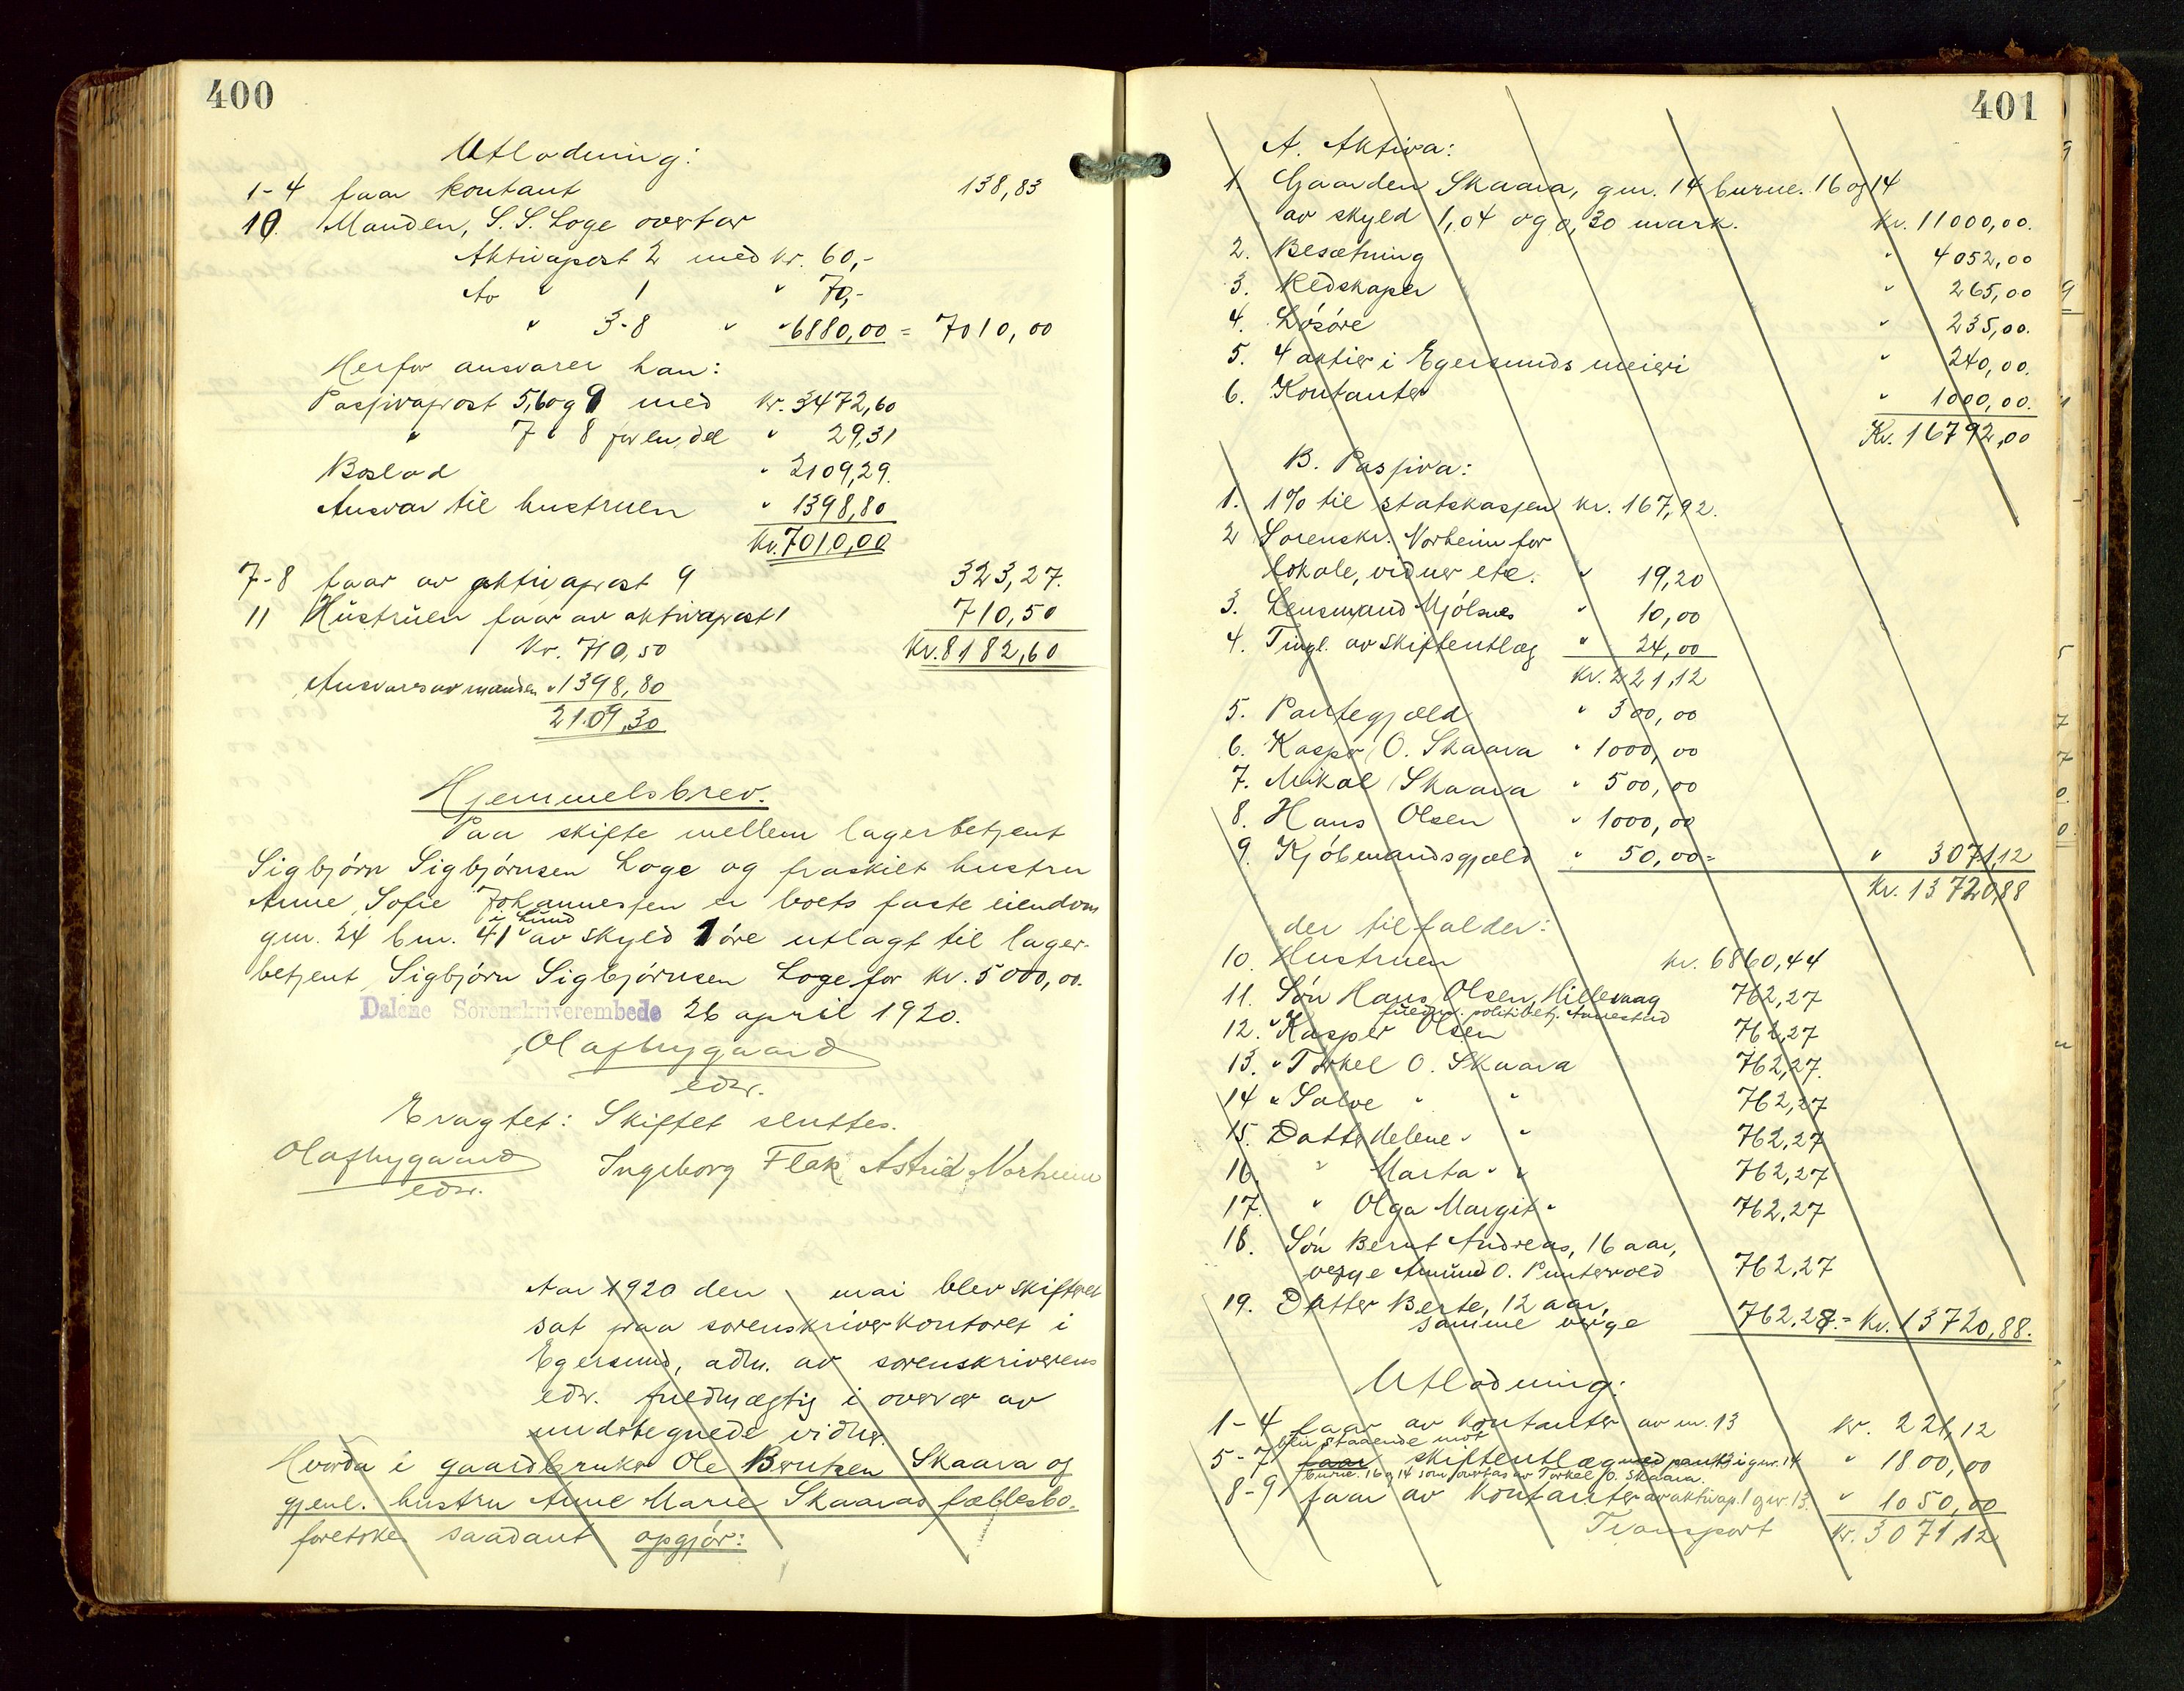 400
Utlodning:
1-4 faar kontant 138,83
10. Manden, S. S. Loge overtar
Aktivapost 2 med kr. 60,-
Av " 1 " 70,-
" 3-8 " " 6880,00 = 7010,00
Herfor ansvarer han:
Passivapost 5,6 og 9 med kr. 3472,60
" 7 " 8 for en del " 29,31
Boslod " 2109,29.
Ansvar til hustruen " 1398,80
Kr. 7010,00
7-8 faar av aktivapost 9 323,27.
11 Hustruen faar av aktivapost 1 710,50
Kr. 710,50 Kr. 8182,60
Ansvar av manden " 1398,80
2109,30
Hjemmelsbrev.
Paa skifte mellem lagerbetjent
Sigbjørn Sigbjørnsen Loge og fraskilt hustru
Anne Sofie Johannessen er boets faste eiendom
i Lund
gnr. 24 bnr. 41 av skyld 1 øre utlagt til lager-
betjent Sigbjørn Sigbjørnsen Loge for kr. 5000,00.
Dalene Sorenskriverembede 26 april 1920.
Olaf Nygaard
edsv.
Eragtet: Skiftet sluttes.
Olaf Nygaard Ingeborg Flak Astrid Norheim
edsv.
Aar 1920 den mai blev skifteret
sat paa sorenskriverkontoret i
Egersund, adm. av sorenskriverens
edsv. fuldmægtig i overvær av
undertegnede vidner.
Hvorda i gaardbruker Ole Berntsen Skaara og
gjenl. hustru Anne Marie Skaaras fællesbo.
foretoke saadant opgjør:
401
A. Aktiva:
1. Gaarden Skaara, gnr. 14 burne. 16 og 14
av skyld 1,04 og 0,30 mark. kr. 11000,00.
2. Besætning " 4052,00
3. Redskaper " 265,00
4. Løsøre " 235,00.
5. 4 aktier i Egersunds meieri " 240,00.
6. Kontanter " 1000,00.
Kr. 16792,00
B. Passiva:
1. 1% til statskassen kr. 167,92.
2 Sorenskr. Norheim for
lokale, vidner etc. " 19,20
3. Lensmand Mjølsnes " 10,00
4. Tingl. av skifteutlæg " 24,00
Kr. 221,12
5. Pantegjæld " 300,00
6. Kasper O. Skaara " 1000,00
7. Mikal Skaara " 500,00
8. Hans Olsen " 1000,00
9. Kjøbmandsgjæld " 50,00 = " 3071,12
Kr. 13720,88
der tilfalder:
10. Hustruen kr. 6860,44
11. Søn Hans Olsen, Hillevaag 762,27
fuldm. politibetj. Aunestad
12. " Kasper Olsen 762,27
13. " Torkel O. Skaara 762,27.
14 " Salve " " 762,27
15. Datter Helene " " 762,27
16. " Marta " " 762,27
17. " Olga Margit " 762,27
18. Søn Bernt Andreas, 16 aar,
verge Amund O. Puntervold 762,27
19. Datter Berte, 12 aar,
samme verge 762,28. = Kr. 13720,88.
Utlodning:
1-4 faar av kontanter av nr. 13 kr. 221,12
blir staaende mot
5-7 faar skifteutlæg med pant i gnr. 14 " 1800,00
burne. 16 og 14 som overtas av Torkel O. Skaara.
8-9 faar av kontanter av aktivap. 1 gjnr. 13. " 1050,00
Transport kr. 3071,12